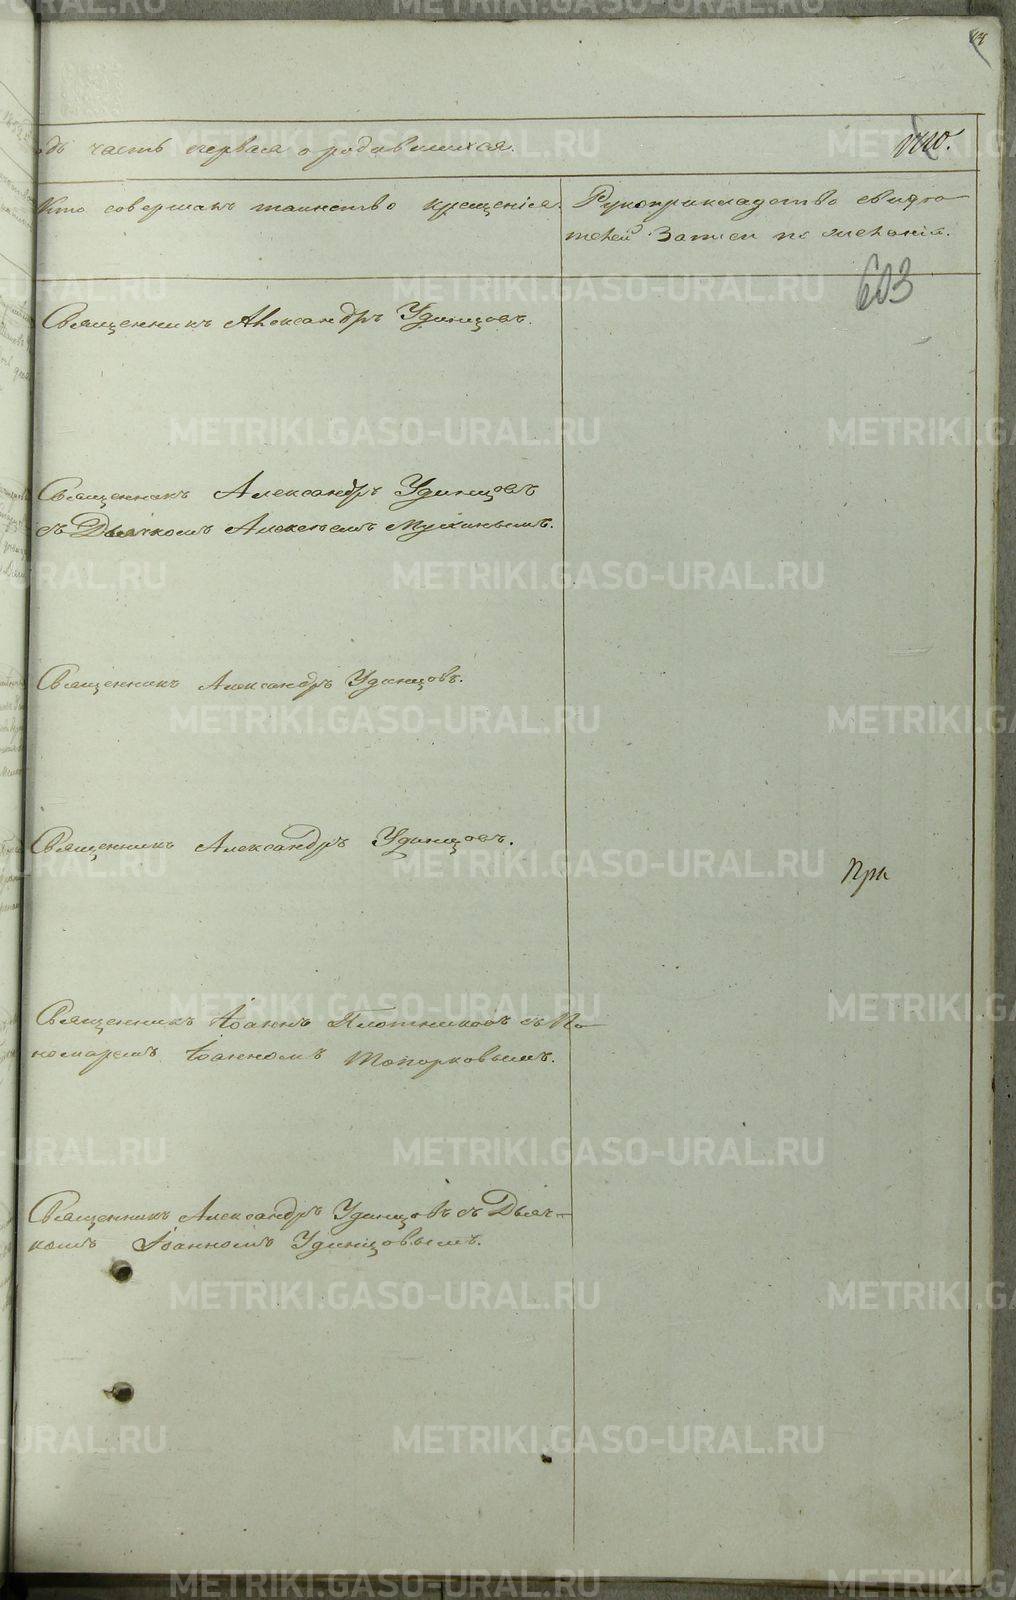 дъ часть первая о родившихся.
Кто совершалъ таинство крещенія.
Рукоприкладство свидѣ-
телей записи по желанію.
603
Священникъ Александръ Удинцовъ.
Священникъ Александръ Удинцовъ
съ Дьячкомъ Алексѣемъ Мухинымъ.
Священникъ Александръ Удинцовъ.
Священникъ Александръ Удинцовъ.
При
Священникъ Іоаннъ Плотниковъ съ По-
номаремъ Іоанномъ Топорковымъ.
Священникъ Александръ Удинцовъ съ Дьяч-
комъ Іоанномъ Удинцовымъ.
METRIKI.GASO-URAL.RU